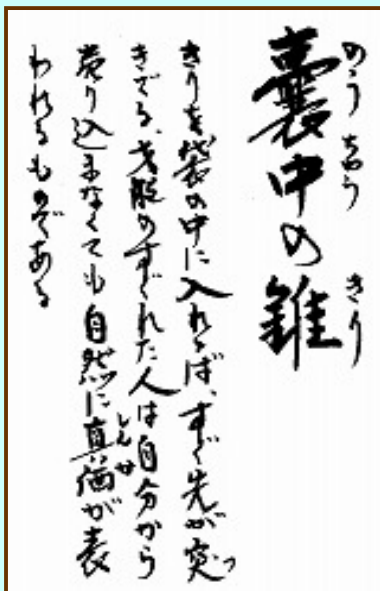 のうちゅう きり
嚢中の錐
きりを袋の中に入れゝば、すぐ先が突
つ
きでる、才能のすぐれた人は自分から
しんか
売り込まなくても自然に真価が表
われるものである